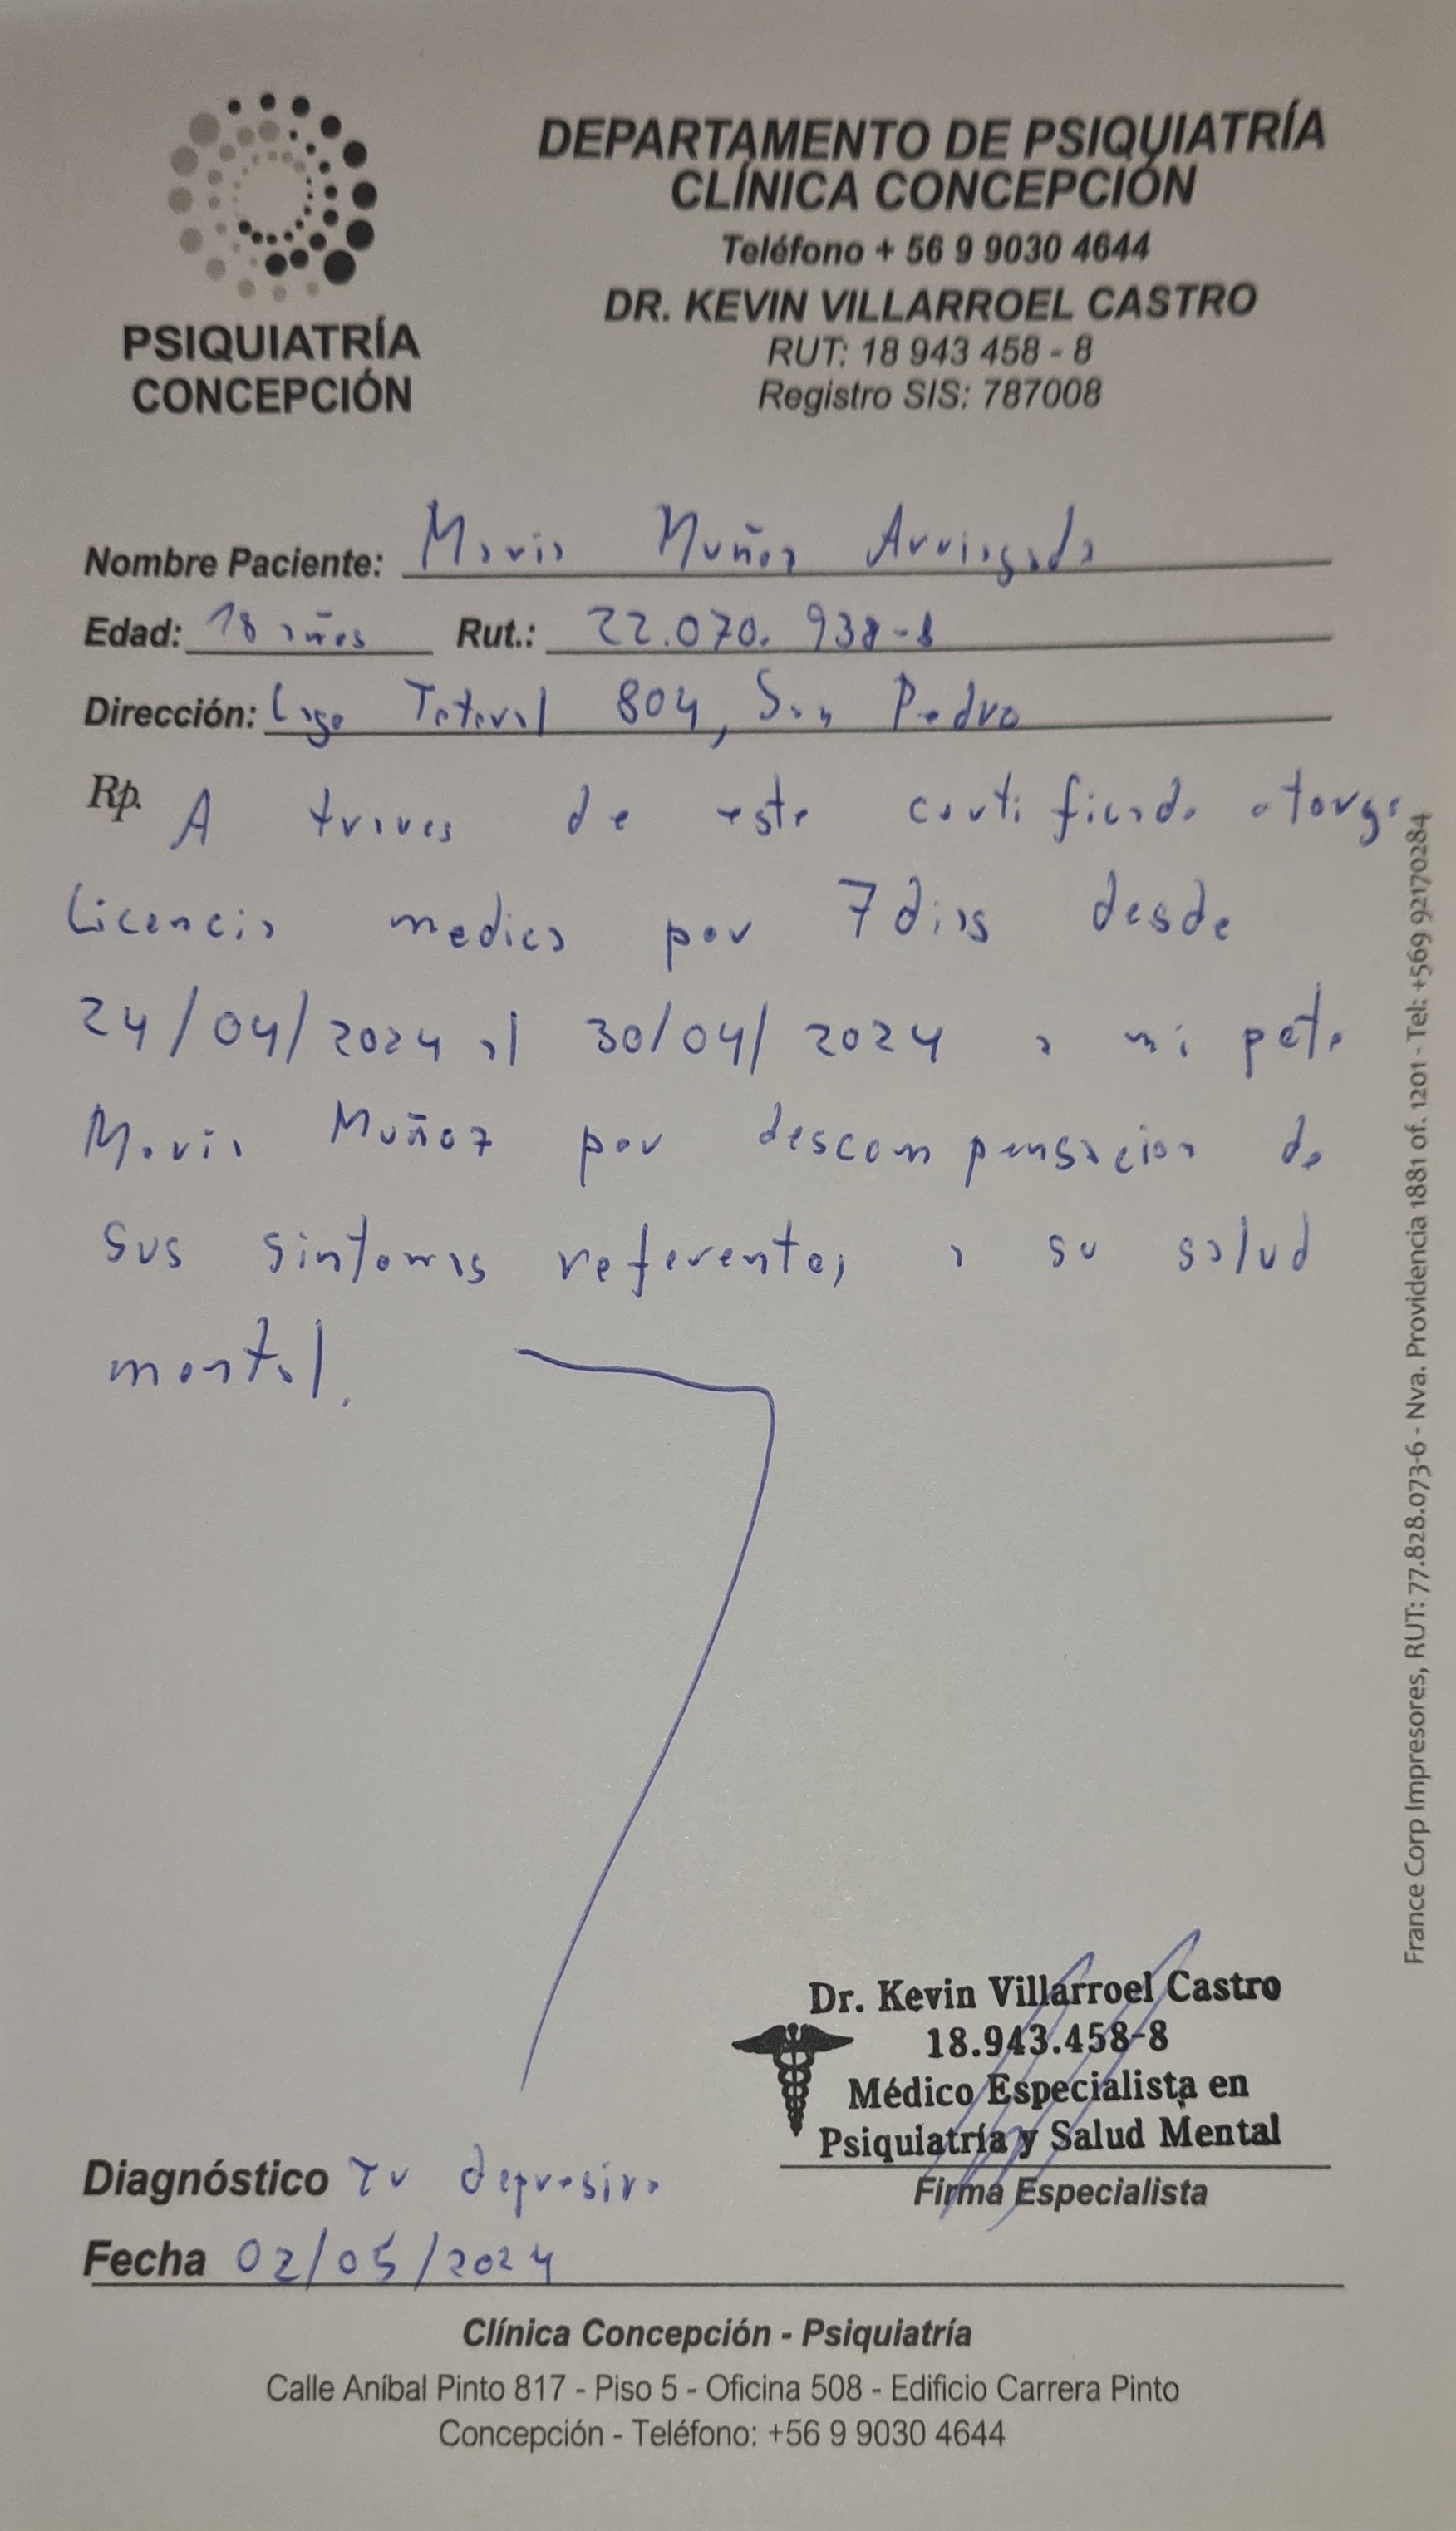 DEPARTAMENTO DE PSIQUIATRÍA
CLÍNICA CONCEPCIÓN
Teléfono + 56 9 9030 4644
DR. KEVIN VILLARROEL CASTRO
RUT: 18 943 458 - 8
Registro SIS: 787008
PSIQUIATRÍA
CONCEPCIÓN
Nombre Paciente: Maria Muñoz Arriagada
Edad: 18 años Rut.: 22.070.938-8
Dirección: Lago 804, San Pedro
Rp. A traves de este certificado otorgo
Licencia medica por 7 dias desde
24/04/2024 al 30/04/2024 a mi pcte
Maria Muñoz por descompensacion de
sus sintomas referentes a su salud
mental.
Dr. Kevin Villarroel Castro
18.943.458-8
Médico Especialista en
Psiquiatría y Salud Mental
Firma Especialista
Diagnóstico Tr depresivo
Fecha 02/05/2024
Clínica Concepción - Psiquiatría
Calle Aníbal Pinto 817 - Piso 5 - Oficina 508 - Edificio Carrera Pinto
Concepción - Teléfono: +56 9 9030 4644
France Corp Impresores, RUT: 77.828.073-6 - Nva. Providencia 1881 of. 1201 - Tel: +569 92170284